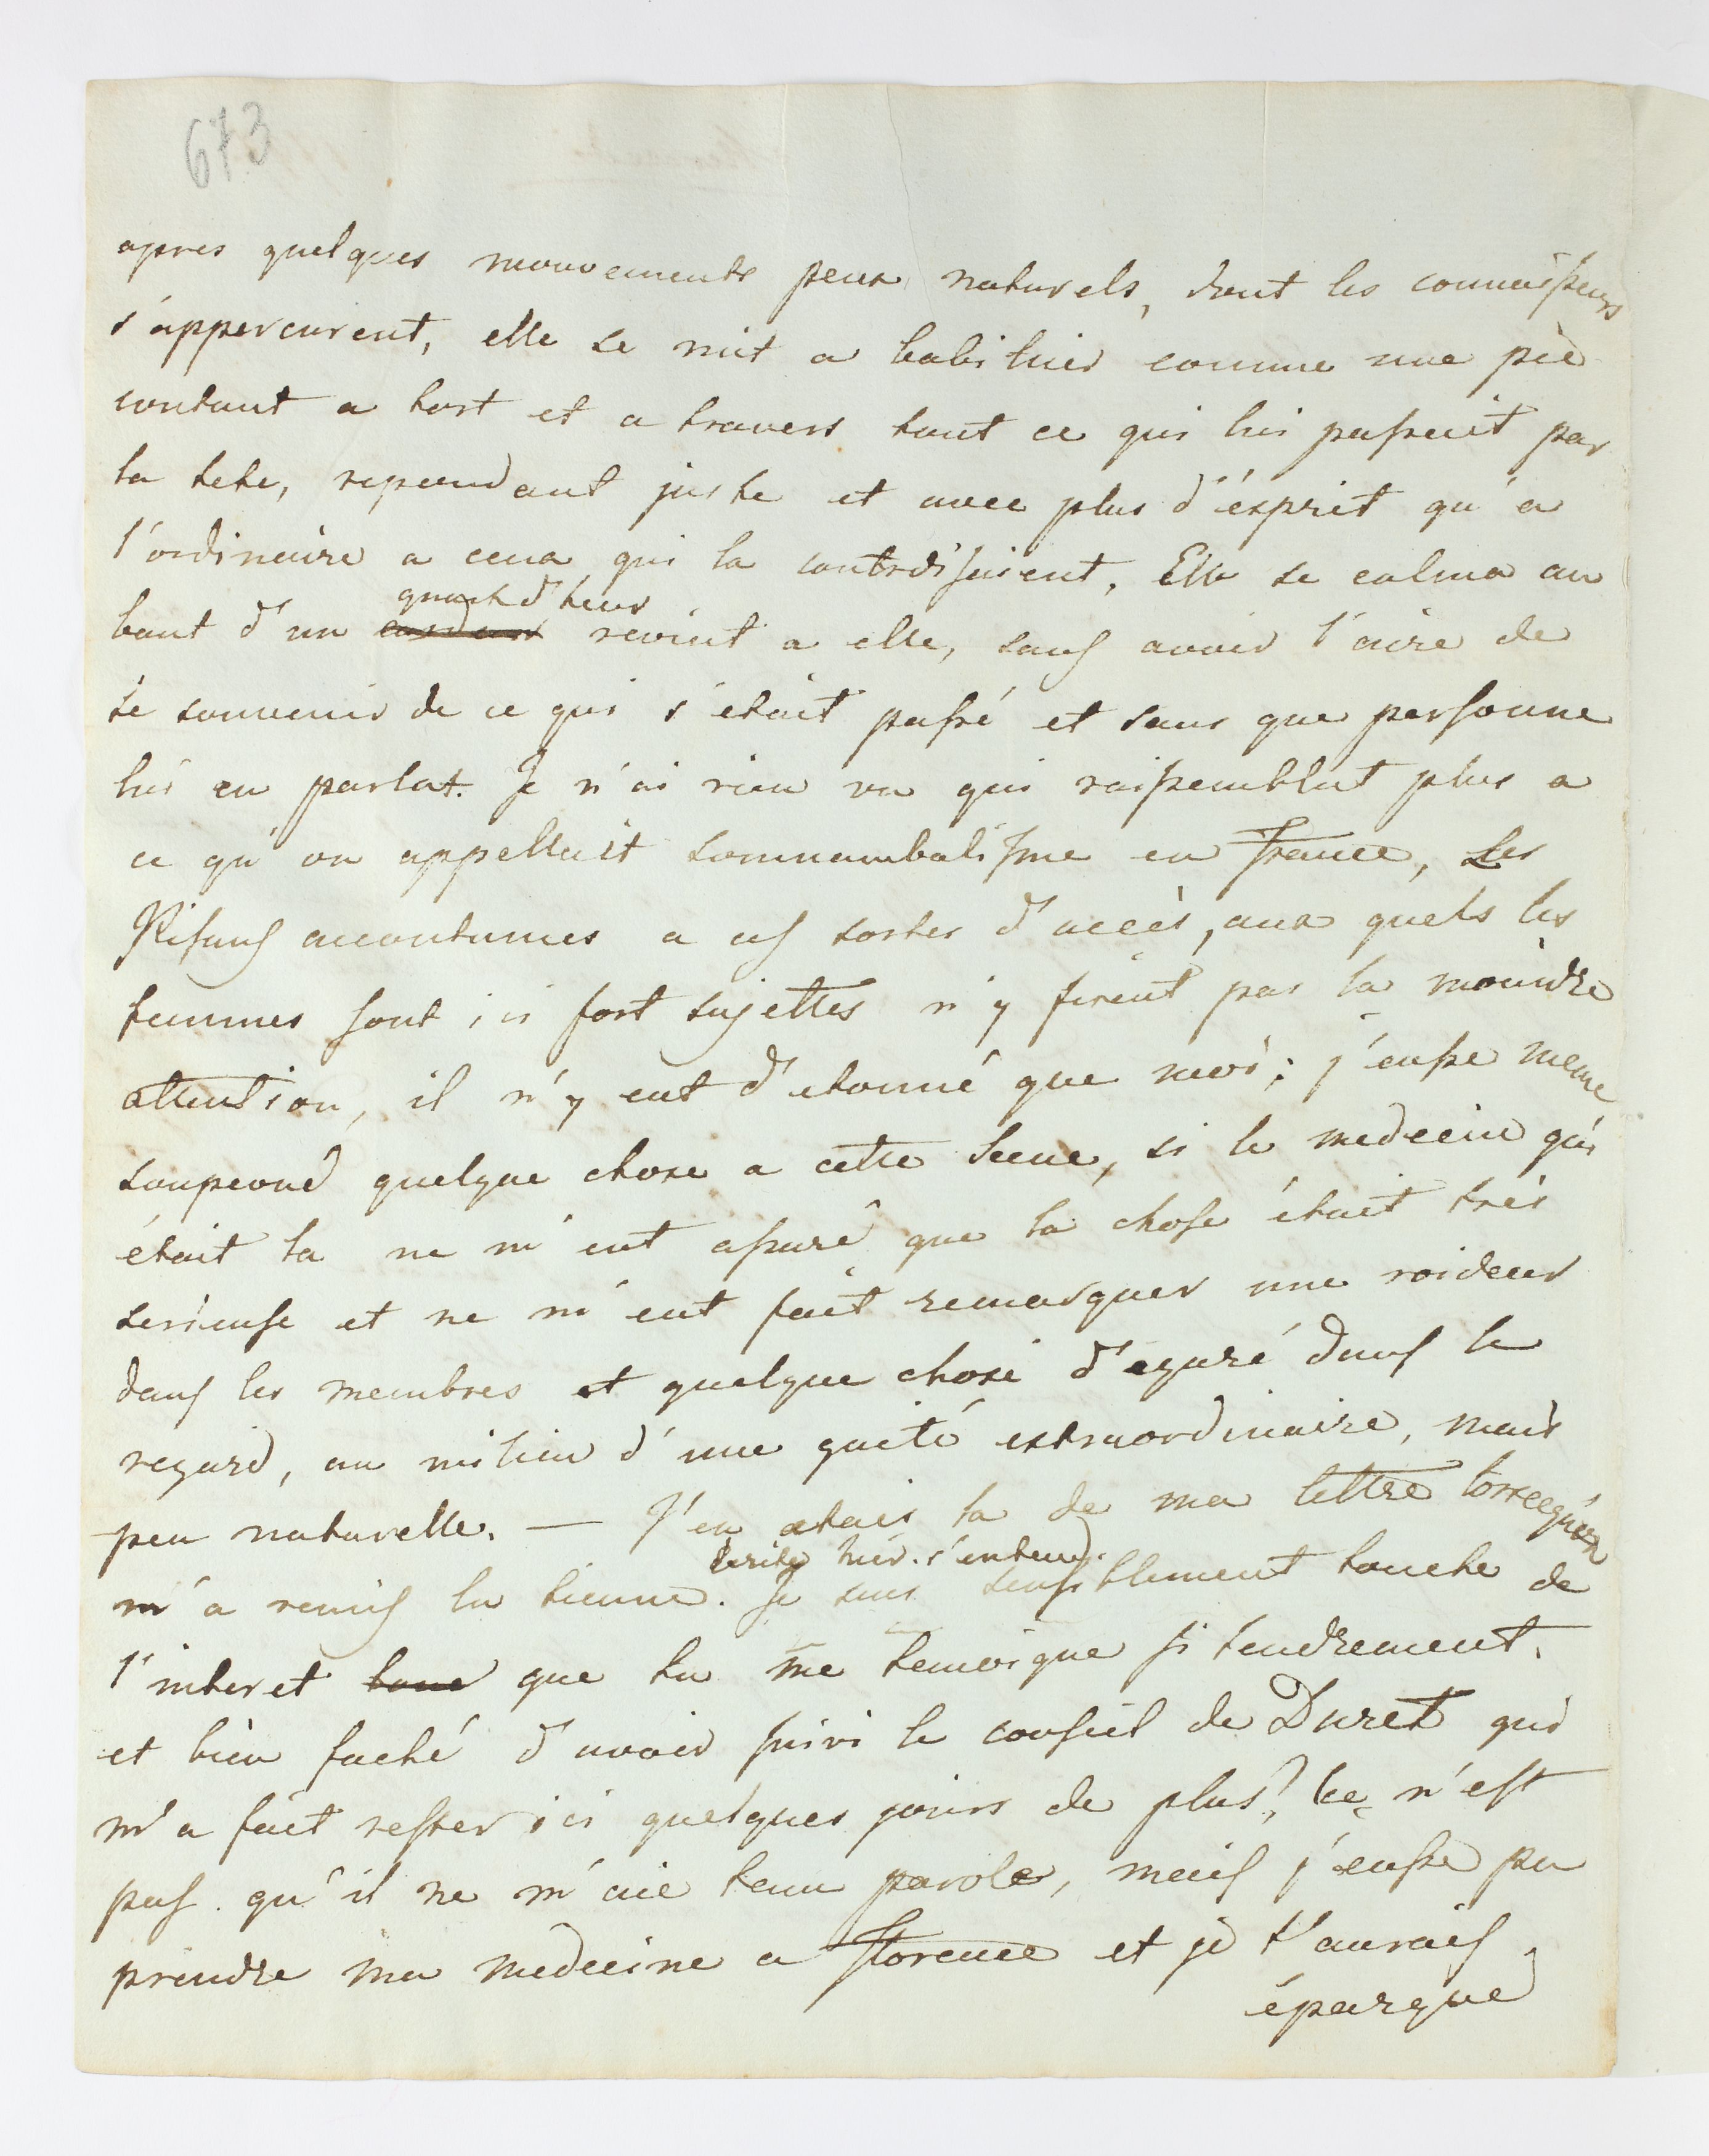 673
apres quelques mouvements peux naturels, dont les connoisseurs
s'appercurent, elle se mit a babiller comme une pie
contant a tort et a travers tout ce qui lui passait par
la tete, repondant juste et avec plus d'ésprit qu'a
l'ordinaire a ceux qui la contredisaient. Elle se calma au
quart d'heur
bout d'un revint a elle, sans avoir l'aire de
se souvenir de ce qui s'etait passé et sans que personne
lui en parlat. Je n'ai rien vu qui raissemblat plus a
ce qu'on appellait somnambulisme en France, Les
Pisans accoutumes a ces sortes d'accès, aux quels les
femmes sont ici fort sujettes n'y firent pas la moindre
attention, il n'y eut d'etonné que moi; j'eusse meme
soupconé quelque chose a cette scene, si le medecin qui
était la ne m'eut assuré que la chose était très
serieuse et ne m'eut fait remarquer une roideur
dans les membres et quelque chose d'egaré dans le
regard, au milieu d'une gaité extraordinaire, mais
peu naturelle. — J'en etais la de ma lettre lorsequ'on
écrite hier s'entend.
m'a remis la tienne. Je suis sensiblement touche de
l'interet que tu me temoigne si tendrement.
et bien faché d'avoir suivi le conseil de Duret qui
m'a fait rester ici quelques jours de plus, Ce n'est
pas qu'il ne m'aie tenu parole, mais j'eusse pu
prendre ma medecine a Florence et je t'aurais
épargné